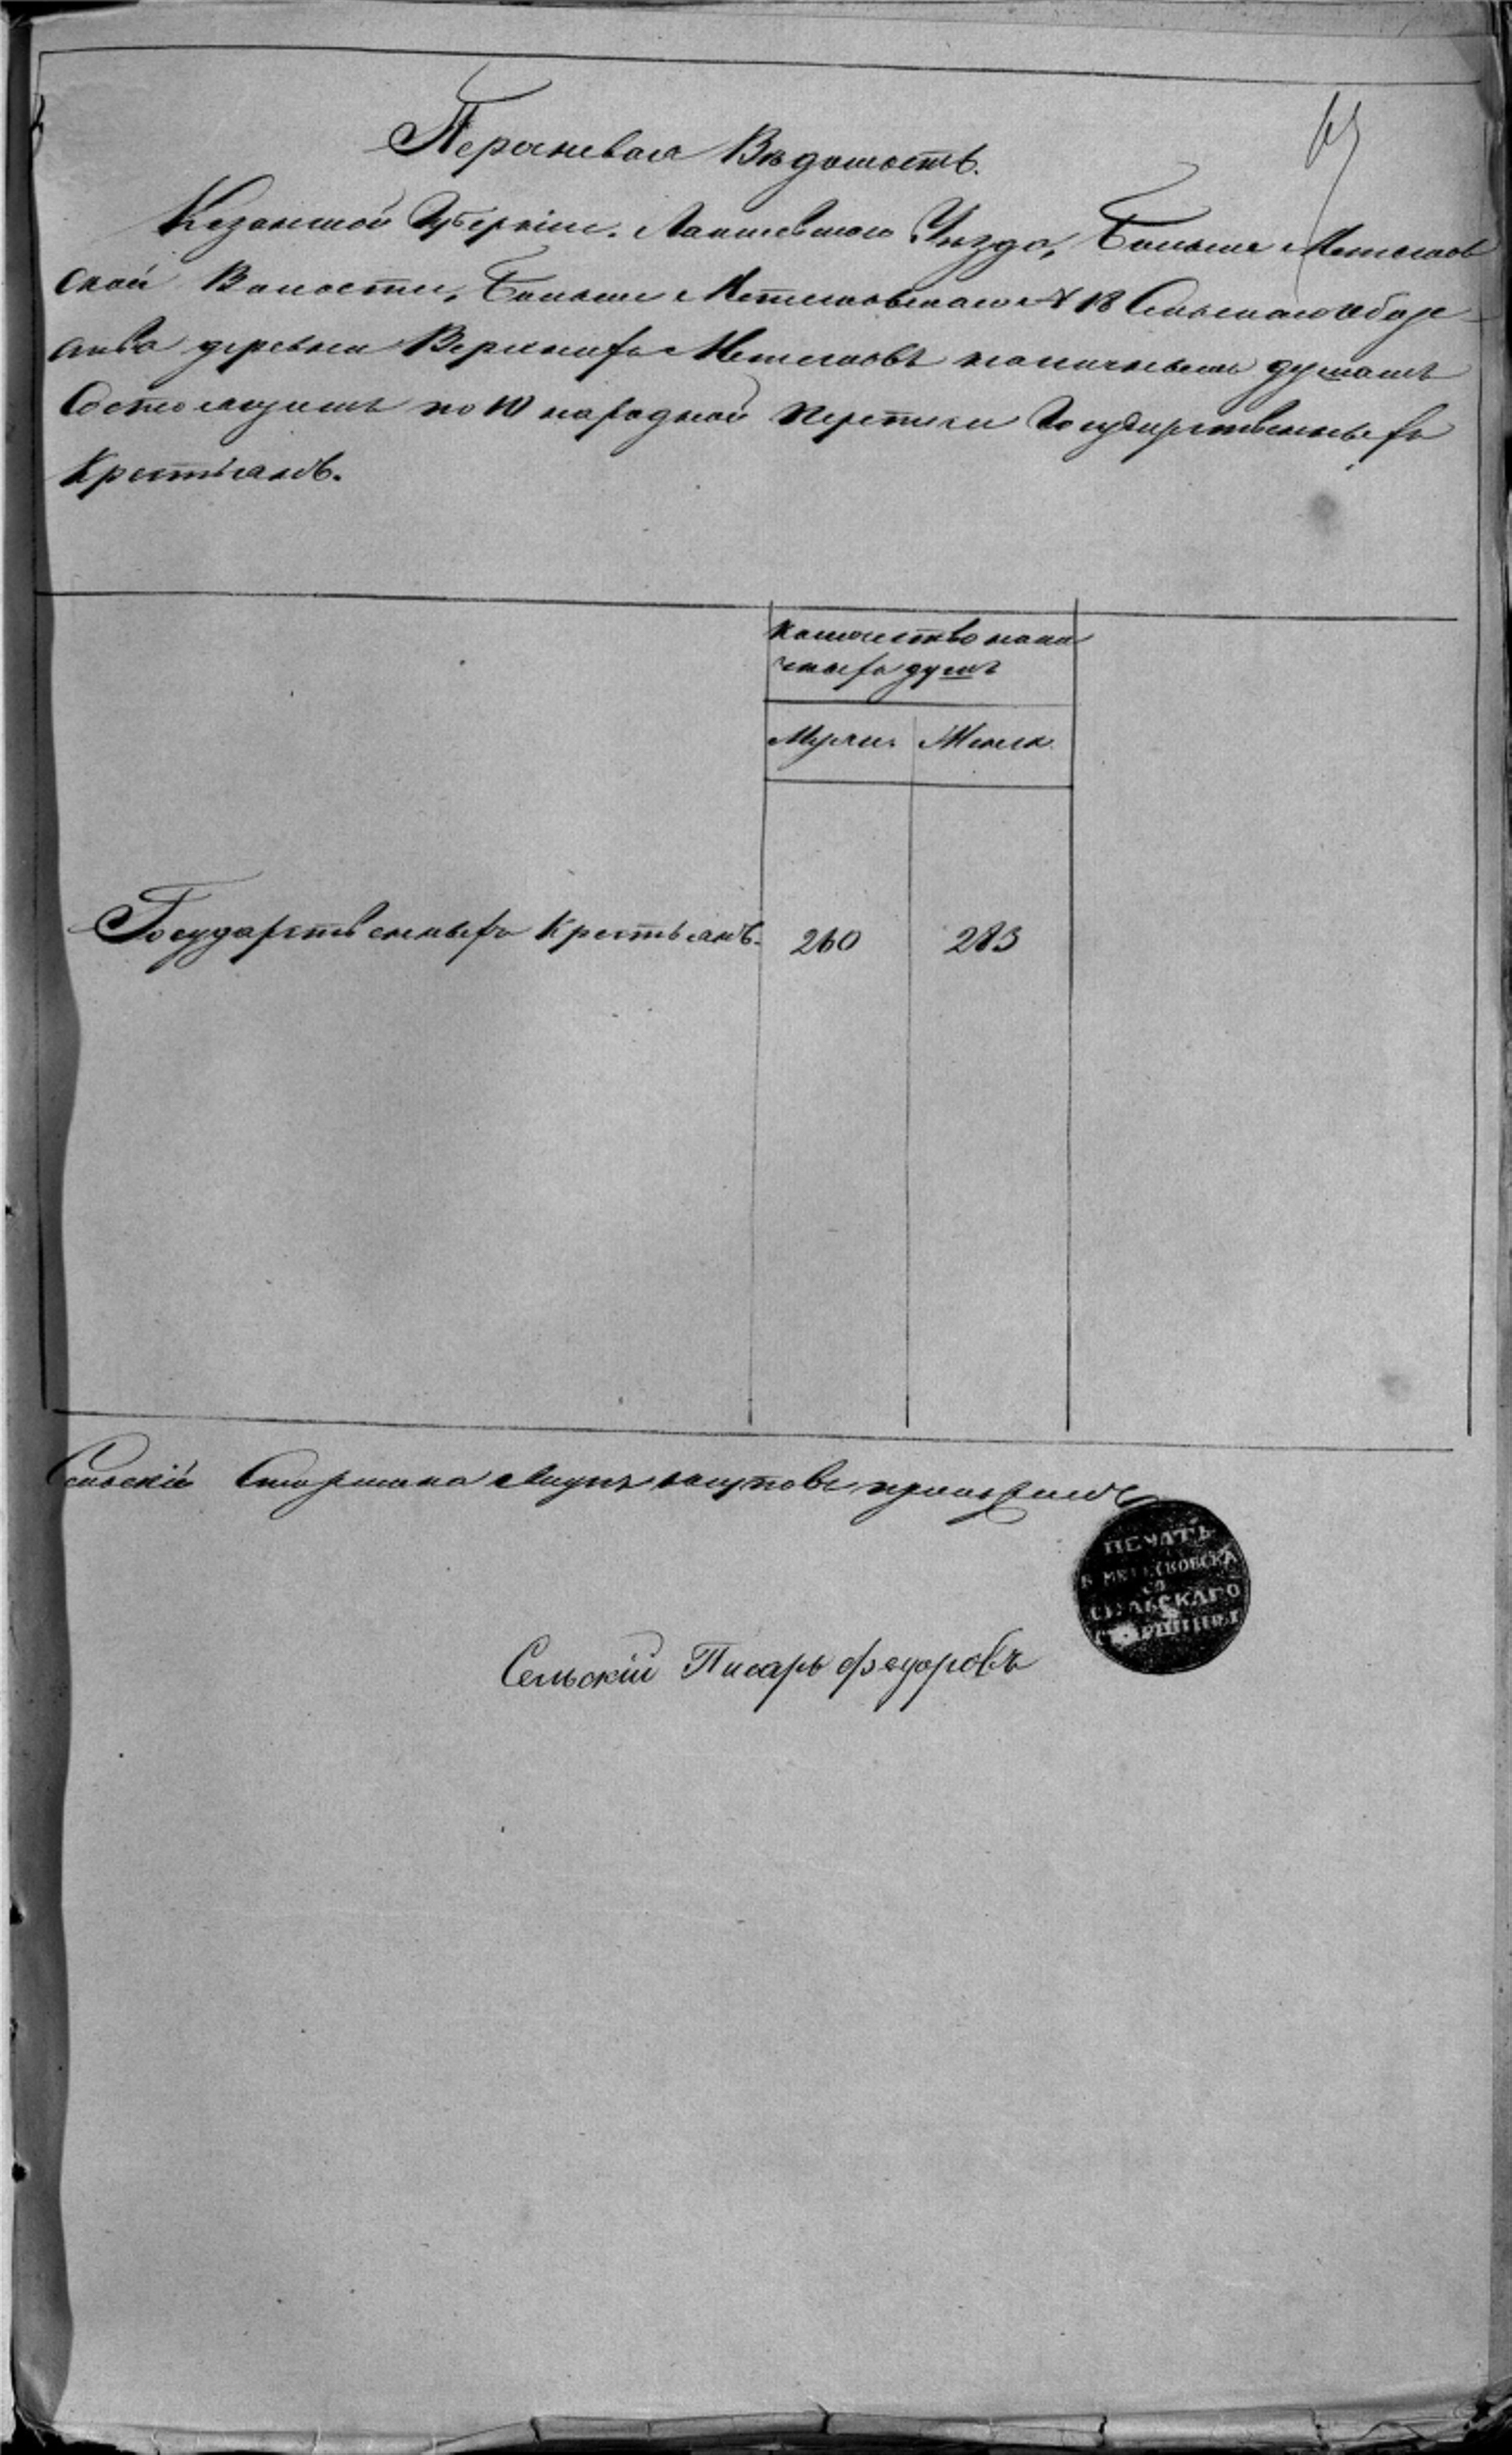 Перечневая Вѣдомость.
Казанской Губерніи. Лаишевскаго Уѣзда, Больше Метесков
ской Волости, Больше Метесковскаго № 18 Сельскаго Обще-
ства деревни Верхнихъ Метесковъ наличнымъ душамъ
Состоящимъ по 10 народной переписи Государственныхъ
Крестьянъ.
Количество нали
чныхъ душъ
Мужчи. Женск.
Государственныхъ Крестьянъ. 260 283
Сельскій Старшина приложилъ
ПЕЧАТЬ
Б МЕТЕСКОВСКА
ГО
СЕЛЬСКАГО
СТАРШИНЫ
Сельскій Писарь Федоровъ